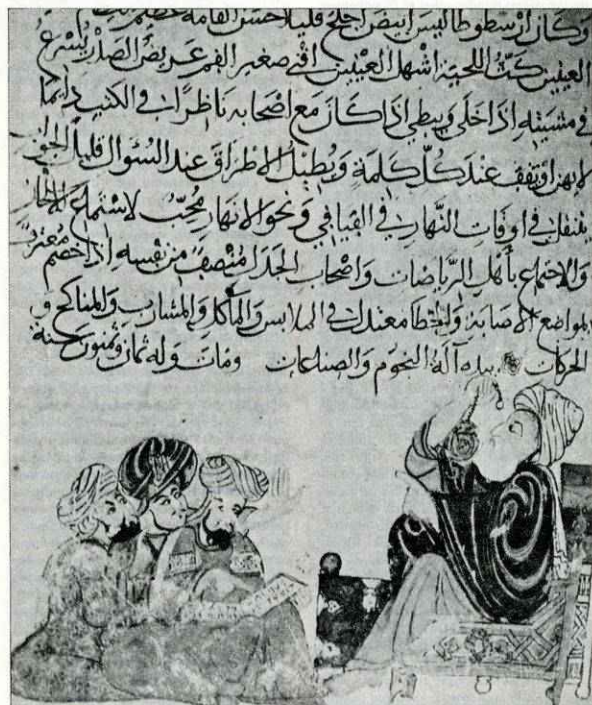 وكان أرسطوطاليس ابيض اجلح قليلا حسن القامة عظيم
العينين كث اللحية اشهل العينين اقنى صغير الفم عريض الصدر يسرع
في مشيته اذا خلى ويبطي اذا كان مع اصحابه ناظرا في الكتب دائما
لا يهدا ويقف عند كل كلمة ويطيل الاطراق عند السؤال قليل الجواب
يتنقل في اوقات النهار في الفيافي ونحو الانهار محب لاستماع الالحان
والاجتماع باهل الرياضات واصحاب الجدل منصف من نفسه اذا خصم معترف
بمواضع الاصابة والخطا معتدل في الملابس والمآكل والمشارب والمناكح و
الحركات بيده آلة النجوم والصناعات ومات وله ثمان وستون سنة